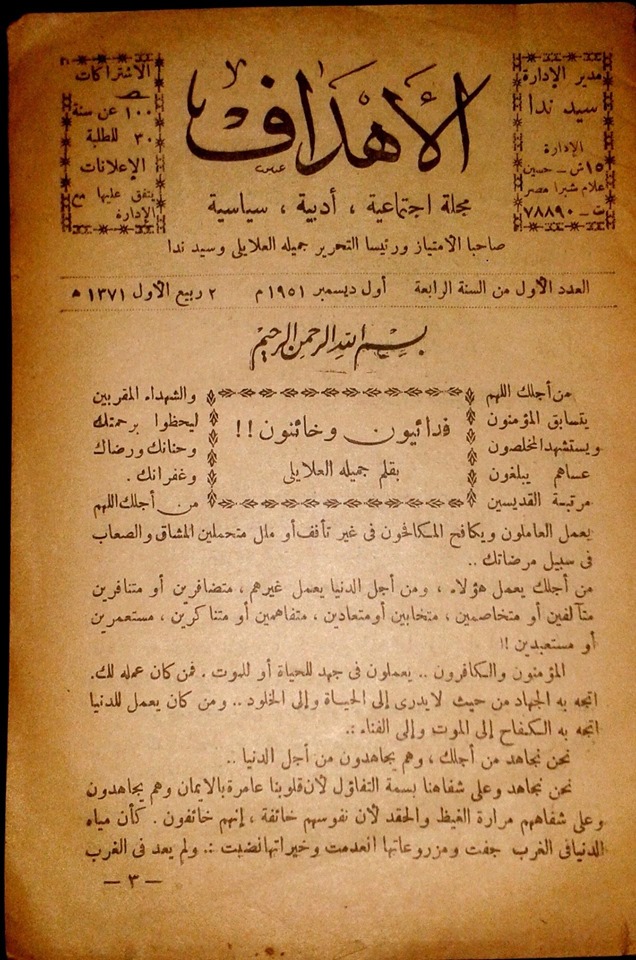 مدير الإدارة
سيد ندا
الإدارة
١٥ ش ـ حسين
علام شبرا مصر
ت ـ ٧٨٨٩٠
الأهداف
الاشتراكات
١٠٠ عن سنة
٣٠ للطلبة
الإعلانات
يتفق عليها مع
الإدارة
مجلة اجتماعية ، أدبية ، سياسية
صاحبا الامتياز ورئيسا التحرير جميله العلايلى وسيد ندا
العدد الأول من السنة الرابعة أول ديسمبر ١٩٥١ م ٢ ربيع الأول ١٣٧١ ه
بسم الله الرحمن الرحيم
فدائيون وخائنون !!
بقلم جميله العلايلى
من أجلك اللهم
يتسابق المؤمنون
ويستشهد المخلصون
عساهم يبلغون
مرتبة القديسين
والشهداء المقربين
ليحظوا برحمتك
وحنانك ورضاك
وغفرانك .
من أجلك اللهم
يعمل العاملون ويكافح المكافحون فى غير تأفف أو ملل متحملين المشاق والصعاب
فى سبيل مرضاتك ..
من أجلك يعمل هؤلاء ، ومن أجل الدنيا يعمل غيرهم ، متضافرين أو متنافرين
متآلفين أو متخاصمين ، متحابين أو متعادين ، متفاهمين أو متناكرين ، مستعمرين
أو مستعبدين !!
المؤمنون والكافرون .. يعملون فى جهد للحياة أو للموت . فمن كان عمله لك.
اتجه به الجهاد من حيث لا يدرى إلى الحياة وإلى الخلود .. ومن كان يعمل للدنيا
اتجه به الكفاح إلى الموت وإلى الفناء .:
نحن نجاهد من أجلك ، وهم يجاهدون من أجل الدنيا ..
نحن نجاهد وعلى شفاهنا بسمة التفاؤل لأن قلوبنا عامرة بالايمان وهم يجاهدون
وعلى شفاههم مرارة الغيظ والحقد لأن نفوسهم خائفة ، إنهم خائفون . كأن مياه
الدنيا فى الغرب جفت ومزروعاتها انعدمت وخيراتها نضبت .: ولم يعد فى الغرب
— ٣ —